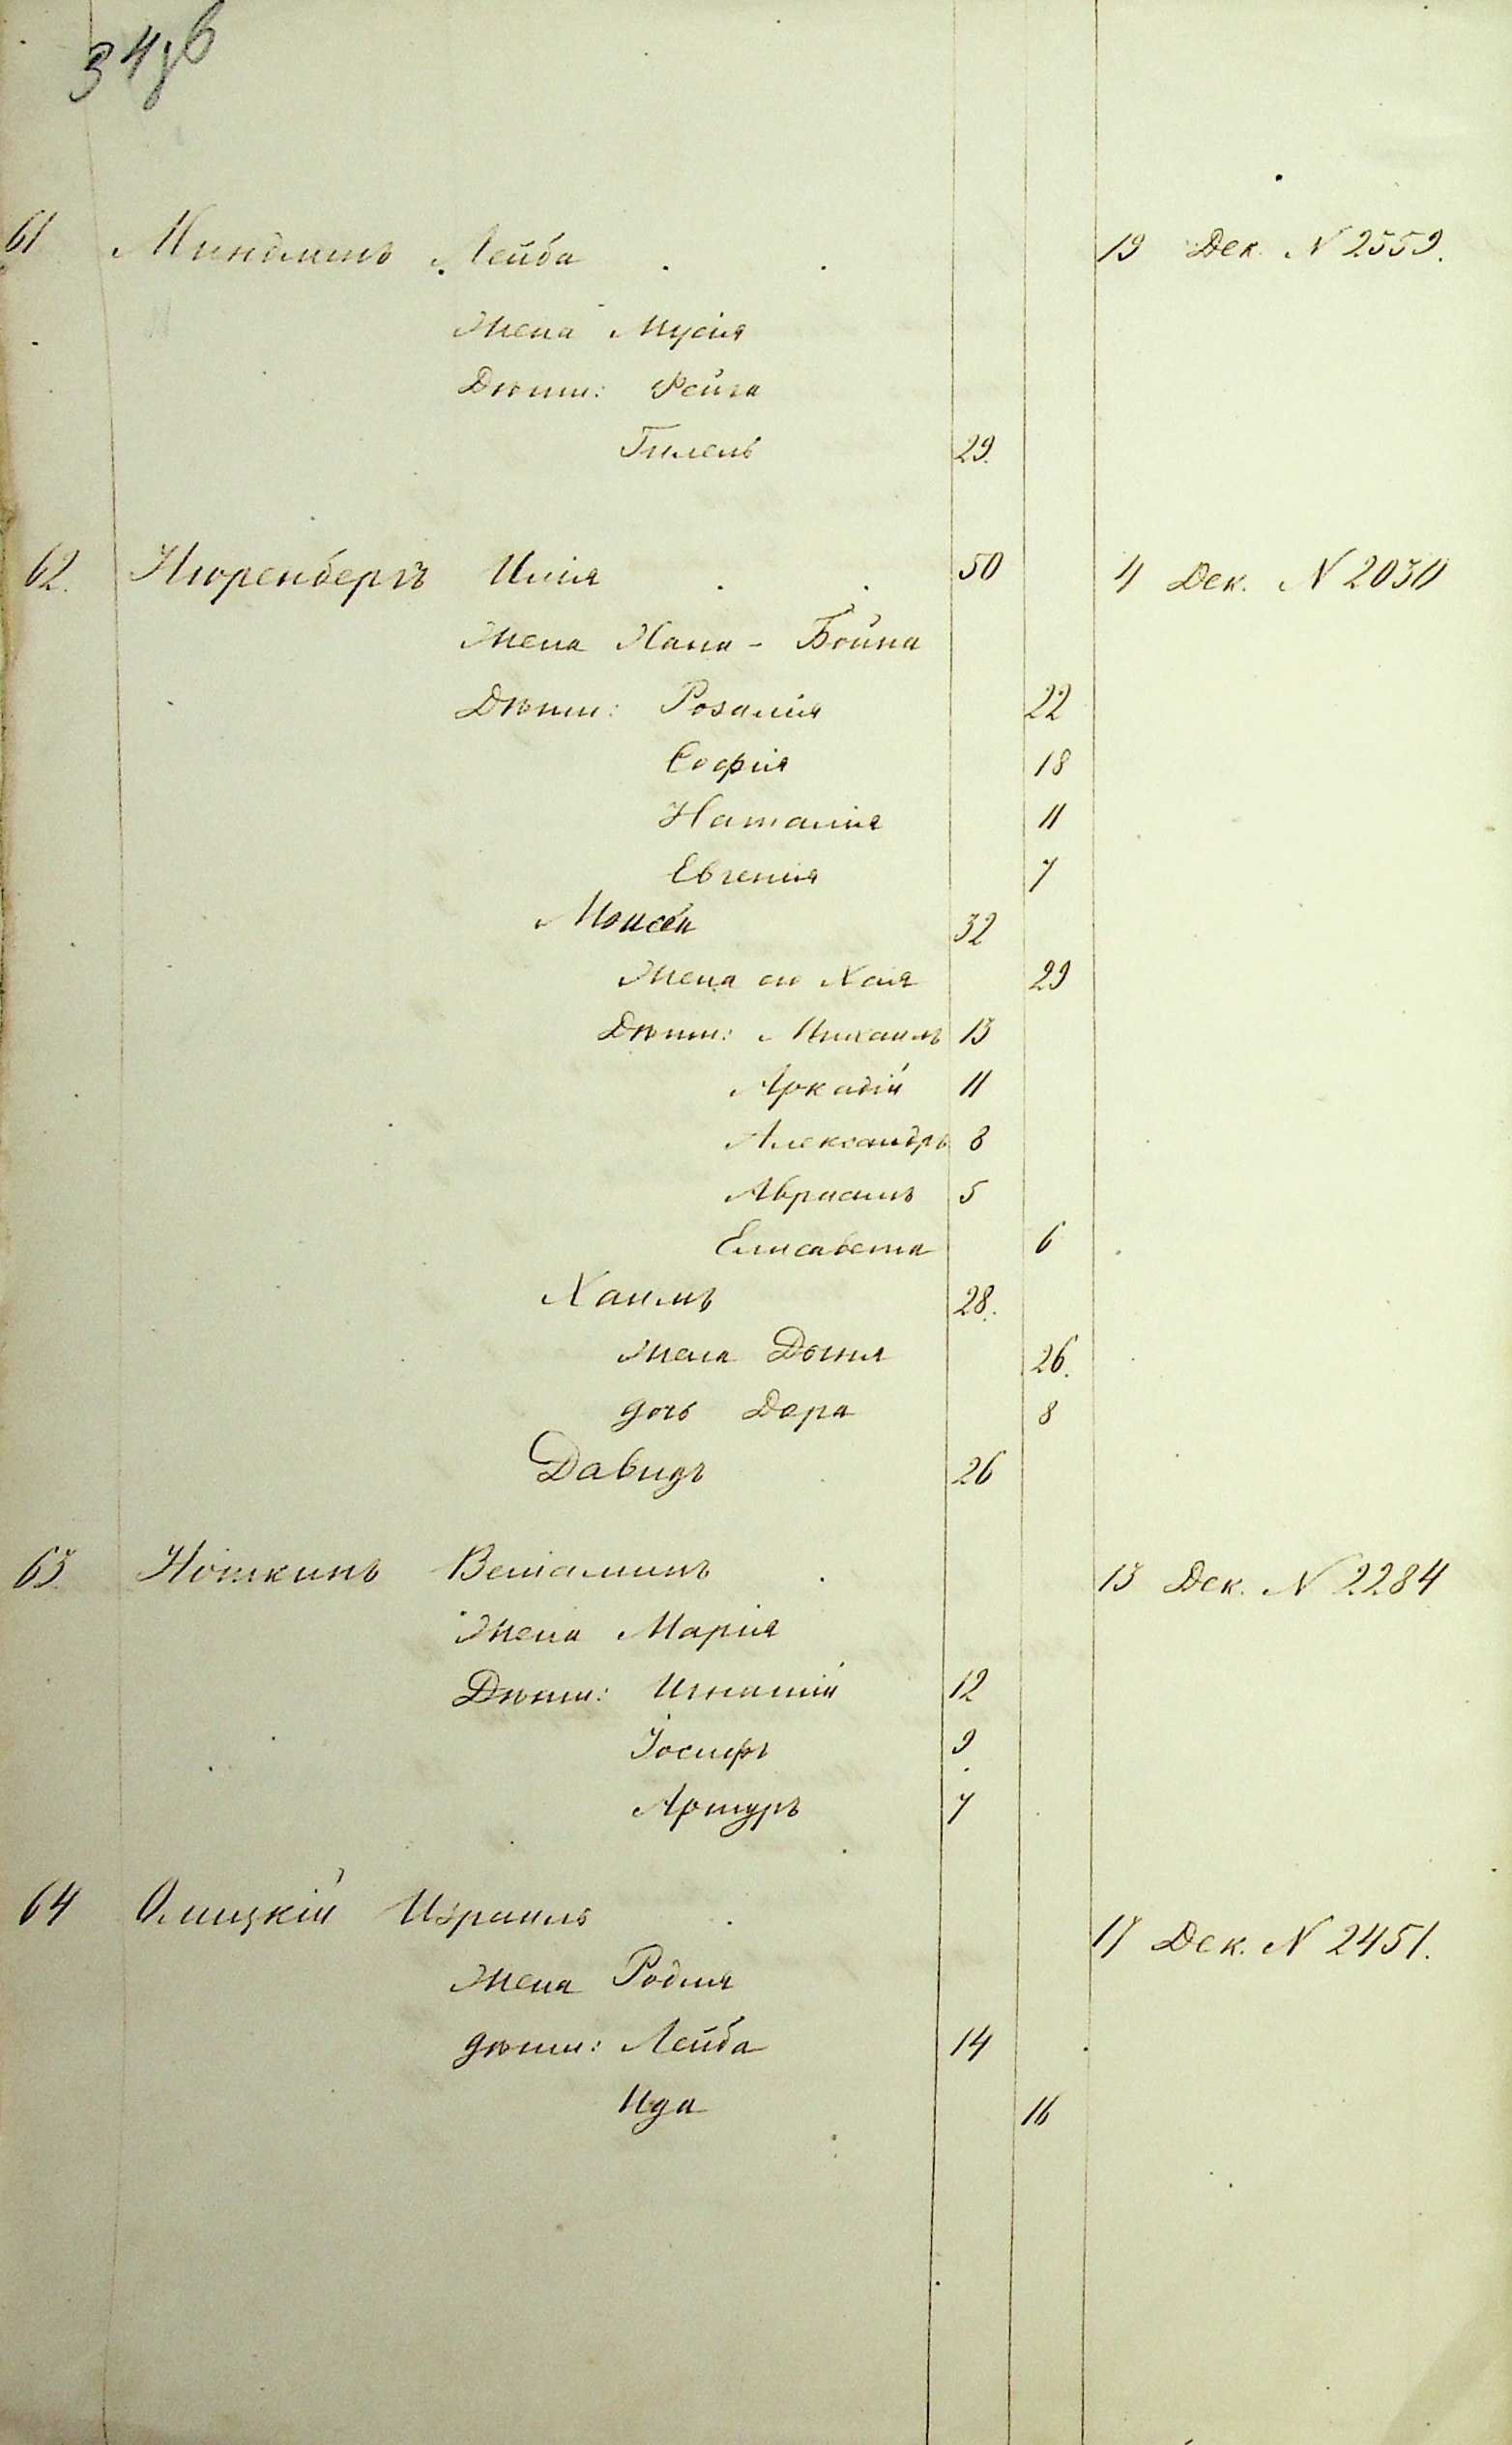 61 Миндлинъ Лейба 19 Дек. N 2559.
Жена Мусія
Дѣти: Фейга
Гилель 29.
62. Нюренбергъ Илія 50 4 Дек. N 2030
Жена Хана - Бойна
Дѣти: Розалія 22
Софія 18
Наталія 11
Евгенія 7
Моисей 32
Жена его Хая 29
Дѣти: Михаилъ 13
Аркадій 11
Александръ 8
Авраамъ 5
Елисавета 6
Хаимъ 28.
Жена 26.
дочь Дора 8
Давидъ 26
63. Ноткинъ Веніаминъ 13 Дек. N 2284
Жена Марія
Дѣти: Игнатій 12
Іосифъ 9
Артуръ 7
64 Олицкій Израиль 17 Дек. N 2451.
Жена Родля
дѣти: Лейба 14
Ида 16